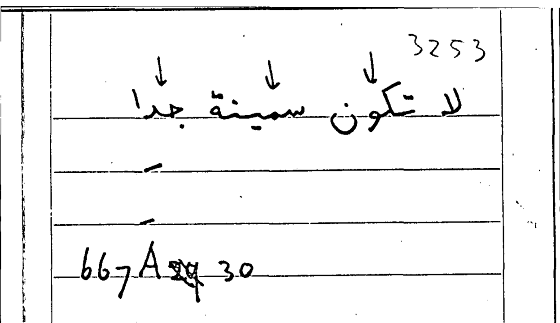 3253
لا تكون سمينة جدا
667A 30